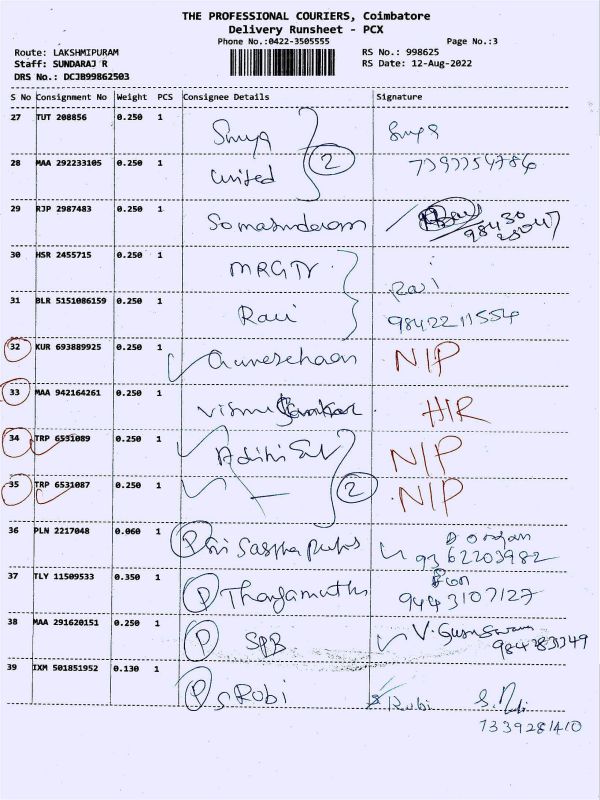 THE PROFESSIONAL COURIERS, Coimbatore
Delivery Runsheet - PCX
Phone No.:0422-3505555 Page No.:3
Route: LAKSHMIPURAM RS No.: 998625
Staff: SUNDARAJ R RS Date: 12-Aug-2022
DRS No.: DCJB99862503
S No Consignment No Weight PCS Consignee Details Signature
27 TUT 208856 0.250 1 Surya Surya
2
28 MAA 292233105 0.250 1 United
29 RJP 2987483 0.250 1 Somasundaram 98430
30 HSR 2455715 0.250 1 MRGTV
31 BLR 5151086159 0.250 1 Ravi Ravi
9842211554
32 KUR 693889925 0.250 1 N/P
33 MAA 942164261 0.250 1 H/R
34 TRP 6531089 0.250 1 Aditi N/P
35 TRP 6531087 0.250 1 2 N/P
36 PLN 2217048 0.060 1 P Sri
9362203982
37 TLY 11509533 0.350 1 P Thayamuthu
9443107127
38 MAA 291620151 0.250 1 P SPB
39 IXM 501851952 0.130 1 P S Rubi Rubi
7339281410